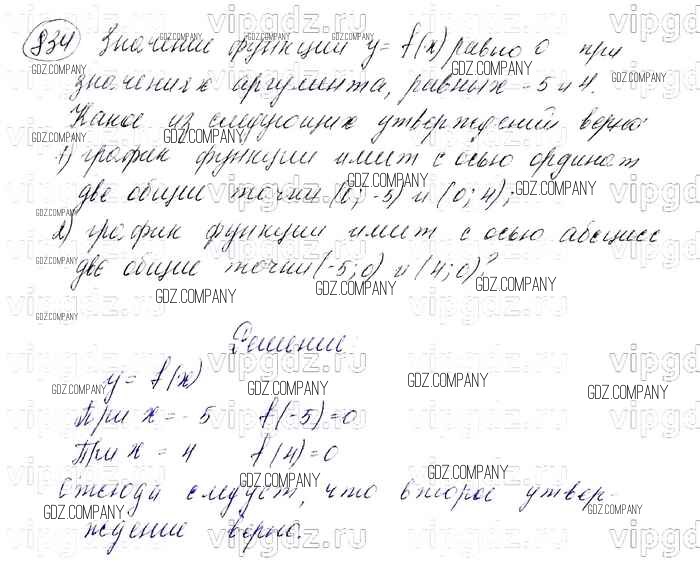 834 Значение функции y = f(x) равно 0 при
значениях аргумента, равных -5 и 4.
Какое из следующих утверждений верно:
1) график функции имеет с осью ординат
две общие точки (0; -5) и (0; 4);
2) график функции имеет с осью абсцисс
две общие точки (-5; 0) и (4; 0)?
Решение:
y = f(x)
При x = -5 f(-5) = 0
При x = 4 f(4) = 0
Отсюда следует, что второе утвер-
ждение верно.